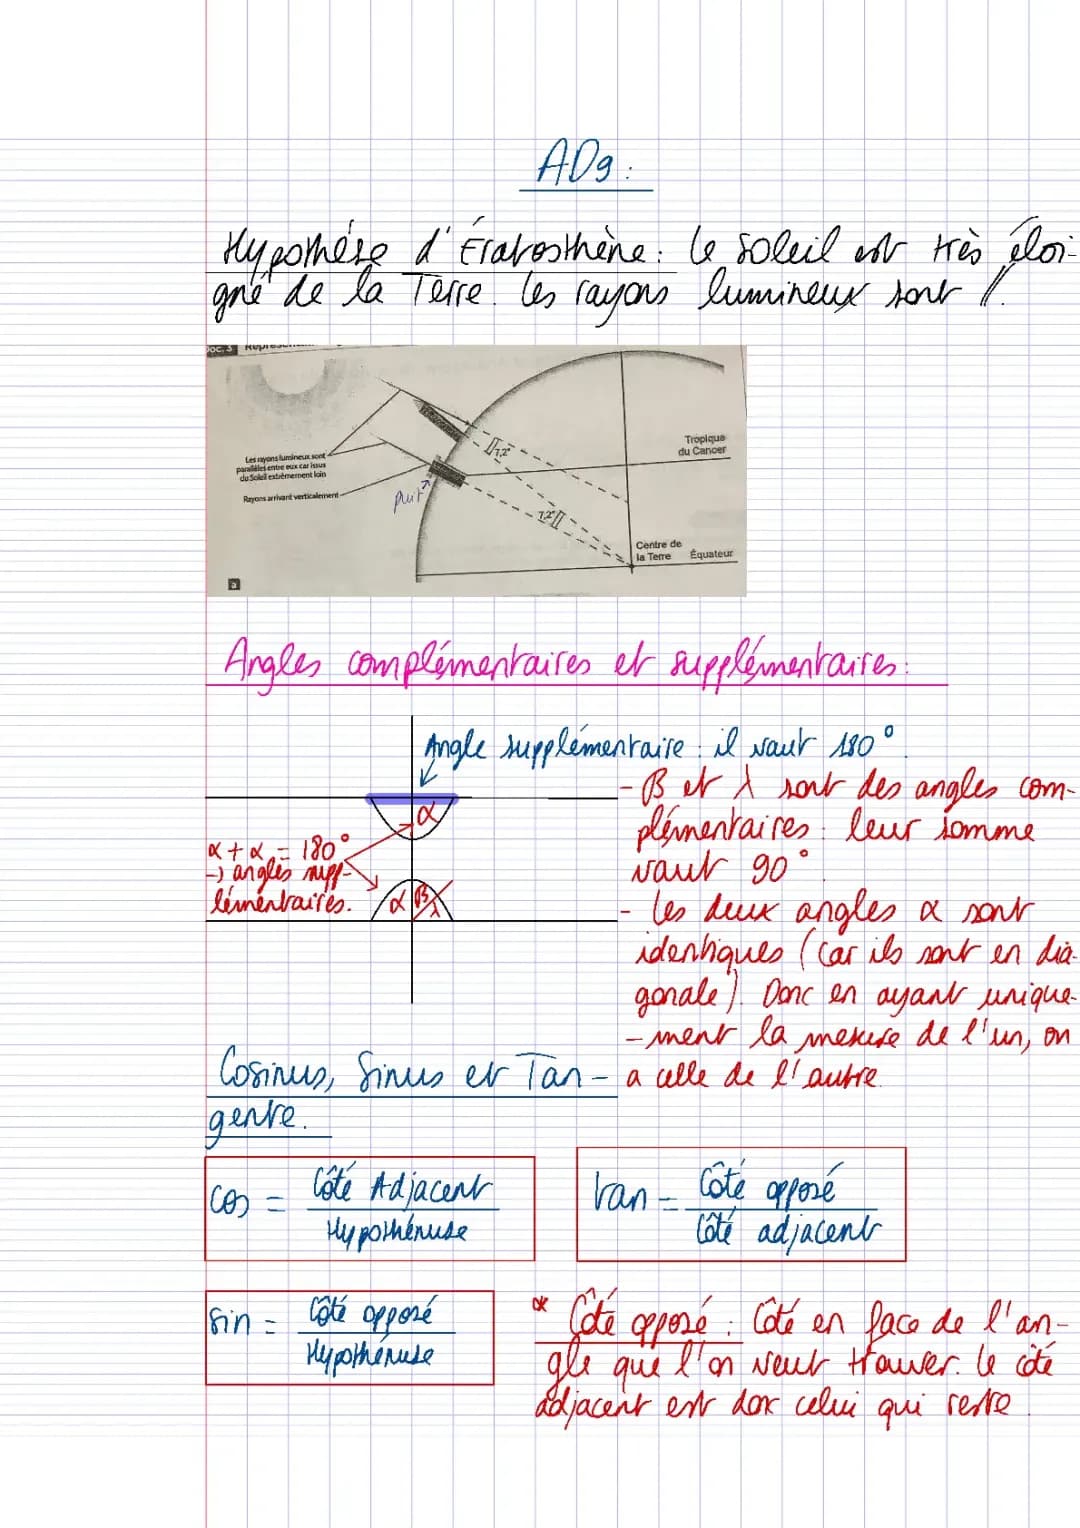 AD9 :
Hypothèse d'Ératosthène : le soleil est très éloi-
gné de la Terre. Les rayons lumineux sont //.
Doc. 3
Les rayons lumineux sont
parallèles entre eux car issus
du Soleil extrêmement loin
Rayons arrivant verticalement
puit
7,2°
7,2°
Tropique
du Cancer
Centre de
la Terre
Équateur
a
Angles complémentaires et supplémentaires :
Angle supplémentaire : il vaut 180°
- β et λ sont des angles com-
plémentaires : leur somme
vaut 90°
α
α + α = 180°
-> angles supp-
lémentaires.
α β λ
- Les deux angles α sont
identiques (car ils sont en dia-
gonale). Donc en ayant unique-
-ment la mesure de l'un, on
a celle de l'autre.
Cosinus, Sinus et Tan-
gente.
cos = Côté Adjacent
Hypothénuse
tan = Côté opposé
Côté adjacent
sin = Côté opposé
Hypothénuse
* Côté opposé : Côté en face de l'an-
gle que l'on veut trouver. Le côté
adjacent est donc celui qui reste.